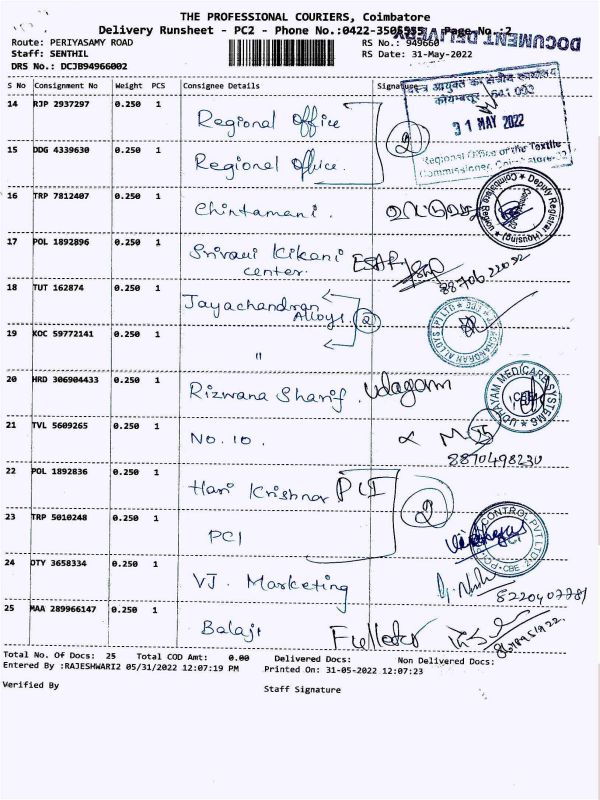 THE PROFESSIONAL COURIERS, Coimbatore
Delivery Runsheet - PC2 - Phone No.:0422-3505555 Page No.:2
DOCUMENT DELIVERY
Route: PERIYASAMY ROAD RS No.: 949660
Staff: SENTHIL RS Date: 31-May-2022
DRS No.: DCJB94966002
S No Consignment No Weight PCS Consignee Details Signature
कोयम्बतूर
31 MAY 2022
Regional Office of the Textile
Commissioner, Coimbatore
14 RJP 2937297 0.250 1 Regional Office 2
15 DDG 4339630 0.250 1 Regional Office
16 TRP 7812407 0.250 1 Chintamani.
Deputy Registrar (Housing)
Coimbatore Region
17 POL 1892896 0.250 1 Srivari Kikani
center.
18 TUT 162874 0.250 1 Jayachandran
Alloys. 2
19 KOC 59772141 0.250 1 "
20 HRD 306904433 0.250 1 Rizwana Sharif. Udayam
UDHAYAM MEDICARE SYSTEMS
CBE
21 TVL 5609265 0.250 1 No. 10.
8870498230
22 POL 1892836 0.250 1 Hari Krishnan PCI 2
23 TRP 5010248 0.250 1 PCI
CONTROL PVT LTD
CBE
24 OTY 3658334 0.250 1 VJ. Marketing 8220407781
25 MAA 289966147 0.250 1 Balaji
Total No. Of Docs: 25 Total COD Amt: 0.00 Delivered Docs: Non Delivered Docs:
Entered By :RAJESHWARI2 05/31/2022 12:07:19 PM Printed On: 31-05-2022 12:07:23
Verified By Staff Signature